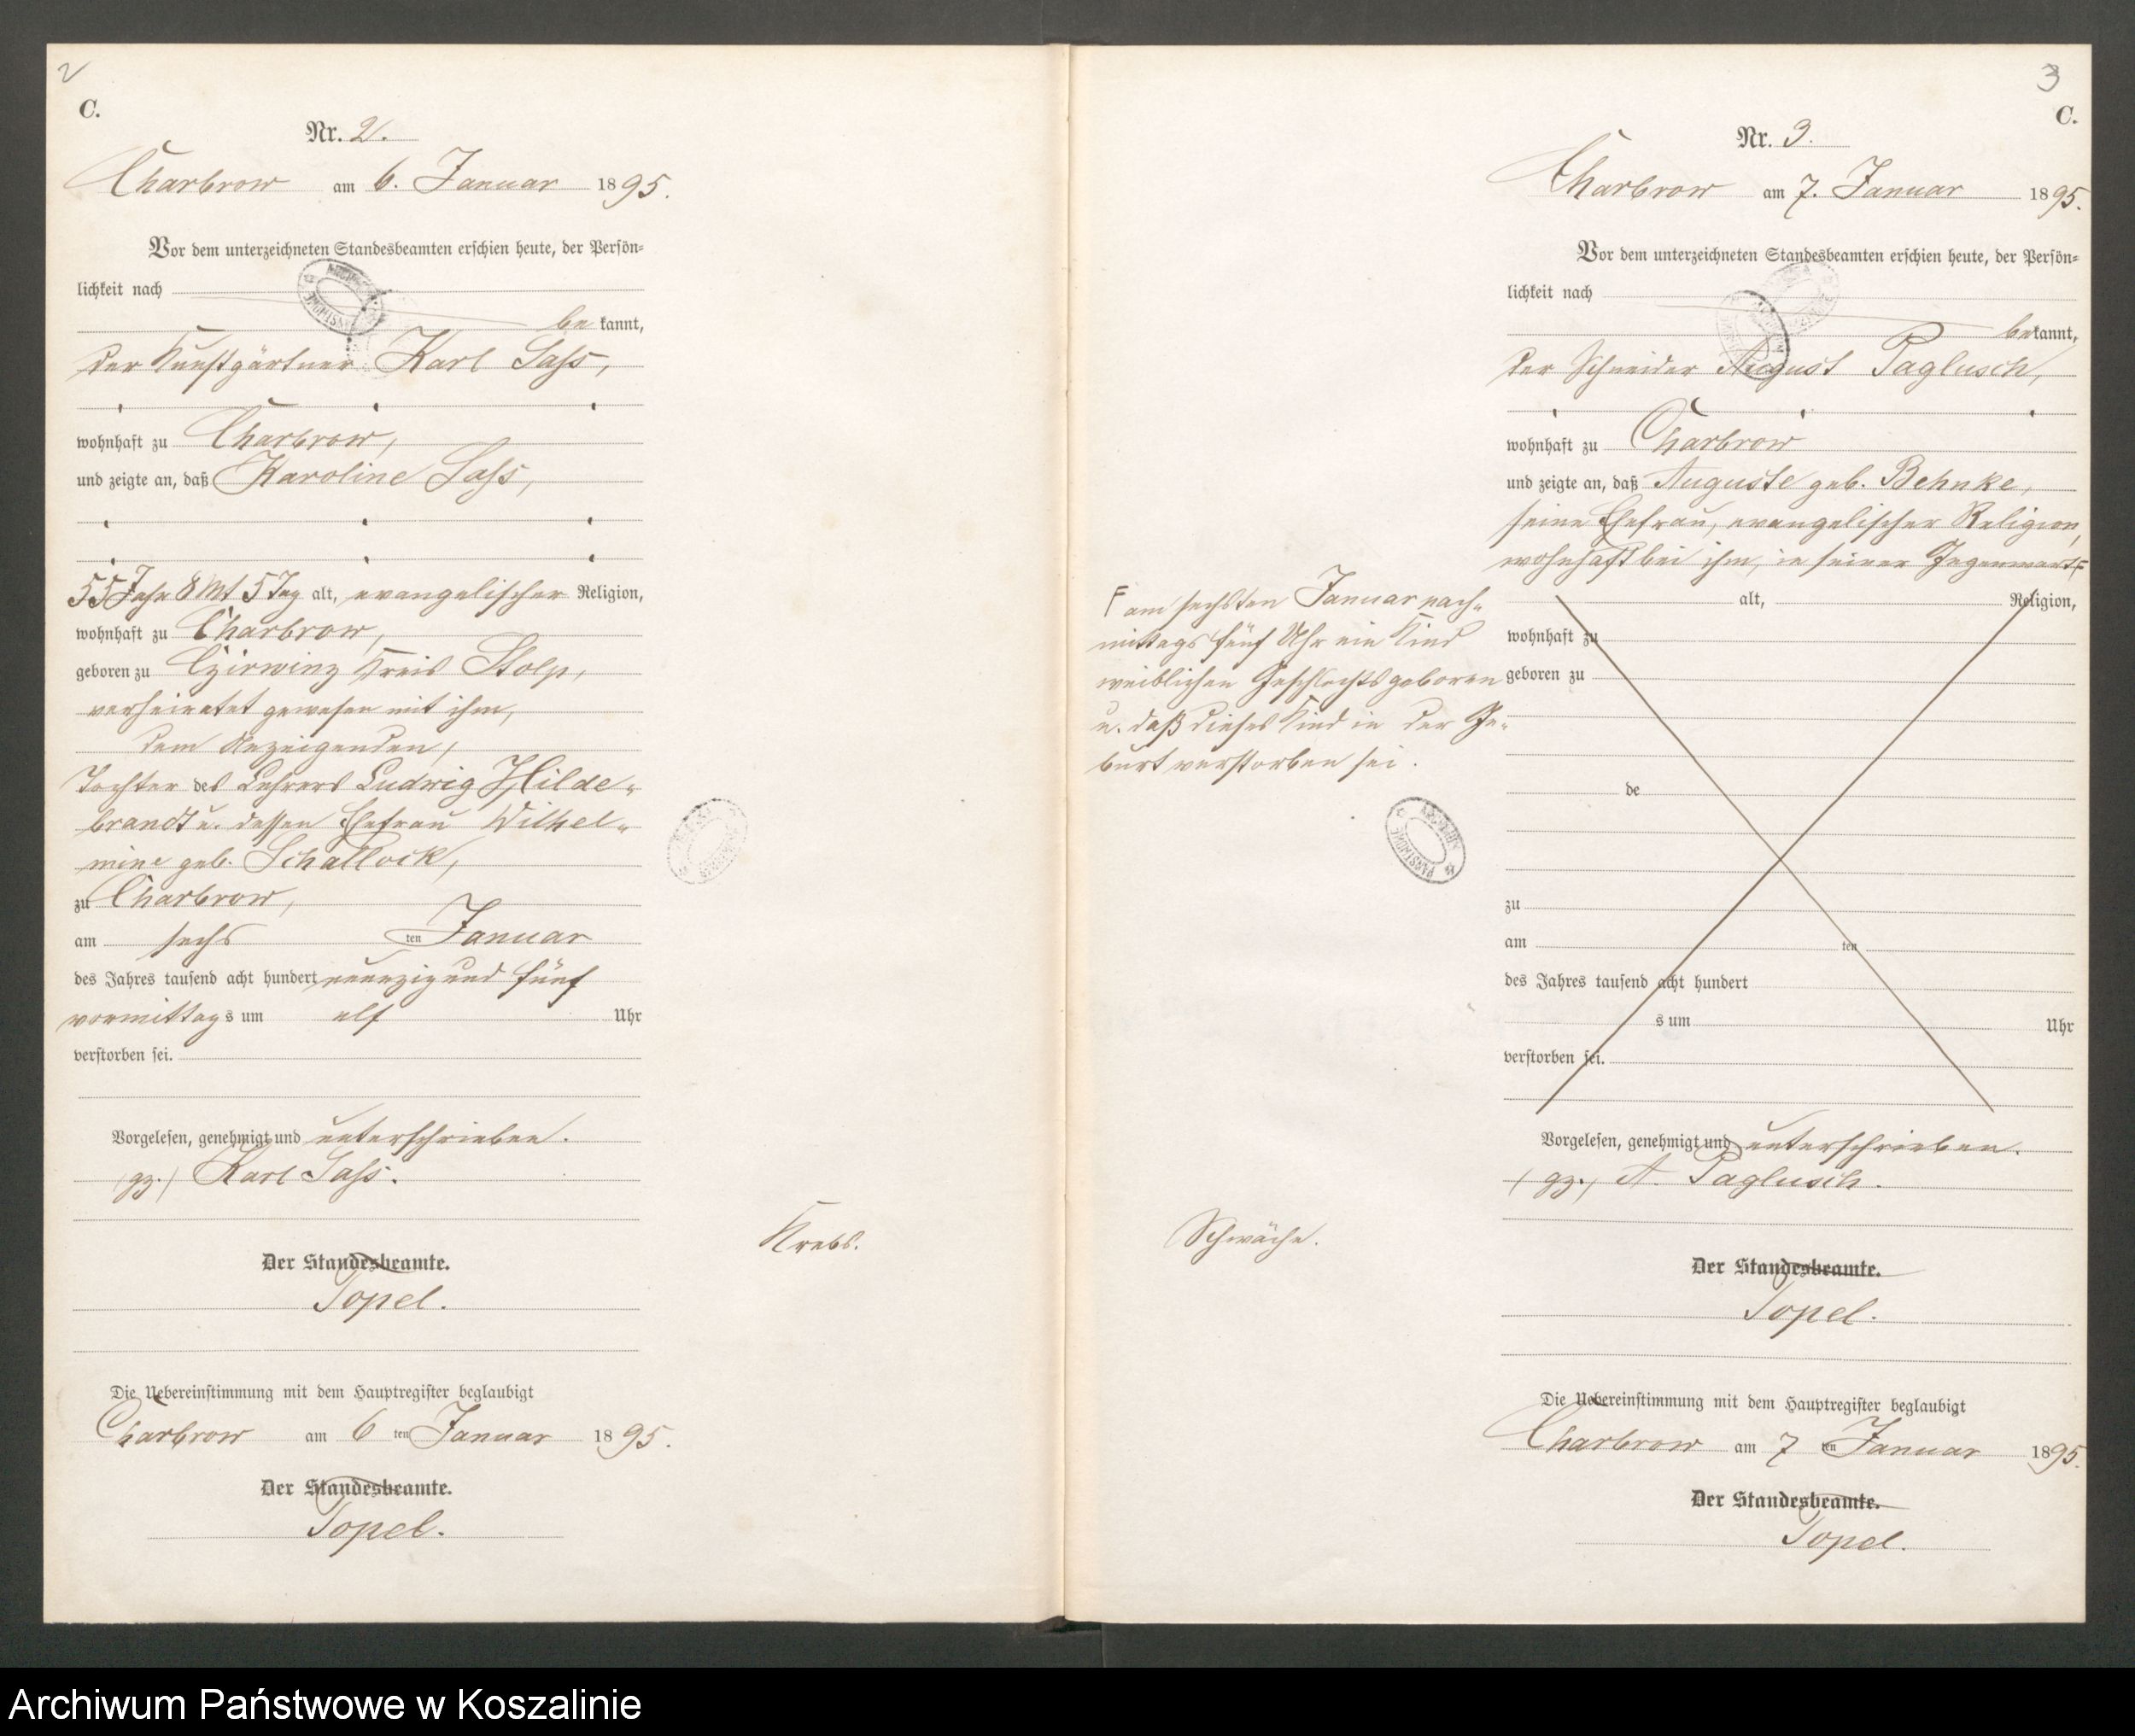 2
C.
Nr. 2.
Charbrow am 6. Januar 1895.
Vor dem unterzeichneten Standesbeamten erschien heute, der Persön-
lichkeit nach
be kannt,
der Kunstgärtner Karl Sass,
wohnhaft zu Charbrow,
und zeigte an, daß Karoline Sass,
55 Jahr 8 Mt 5 Tag alt, evangelischer Religion,
wohnhaft zu Charbrow,
geboren zu Czirwinz Kreis Stolp,
verheiratet gewesen mit ihm,
dem Anzeigenden,
Tochter des Lehrers Ludwig Hilde-
brandt u. dessen Ehefrau Wilhel-
mine geb. Schallock,
zu Charbrow,
am sechs ten Januar
des Jahres tausend acht hundert neunzig und fünf
vormittags um elf Uhr
verstorben sei.
Vorgelesen, genehmigt und unterschrieben.
(gz.) Karl Sass.
Krebs.
Der Standesbeamte.
Topel.
Die Uebereinstimmung mit dem Hauptregister beglaubigt
Charbrow am 6 ten Januar 1895.
Der Standesbeamte.
Topel.
3
C.
Nr. 3.
Charbrow am 7. Januar 1895.
Vor dem unterzeichneten Standesbeamten erschien heute, der Persön-
lichkeit nach
bekannt,
der Schneider August Paglusch,
wohnhaft zu Charbrow
und zeigte an, daß Auguste geb. Behnke,
seine Ehefrau, evangelischer Religion,
wohnhaft bei ihm, in seiner Gegenwart
am sechsten Januar nach-
mittags fünf Uhr ein Kind
weiblichen Geschlechts geboren
u. daß dieses Kind in der Ge-
burt verstorben sei.
alt, Religion,
wohnhaft zu
geboren zu
de
zu
am ten
des Jahres tausend acht hundert
s um Uhr
verstorben sei.
Vorgelesen, genehmigt und unterschrieben.
(gz.) A. Paglusch.
Schwäche.
Der Standesbeamte.
Topel.
Die Uebereinstimmung mit dem Hauptregister beglaubigt
Charbrow am 7 ten Januar 1895.
Der Standesbeamte.
Topel.
Archiwum Państwowe w Koszalinie